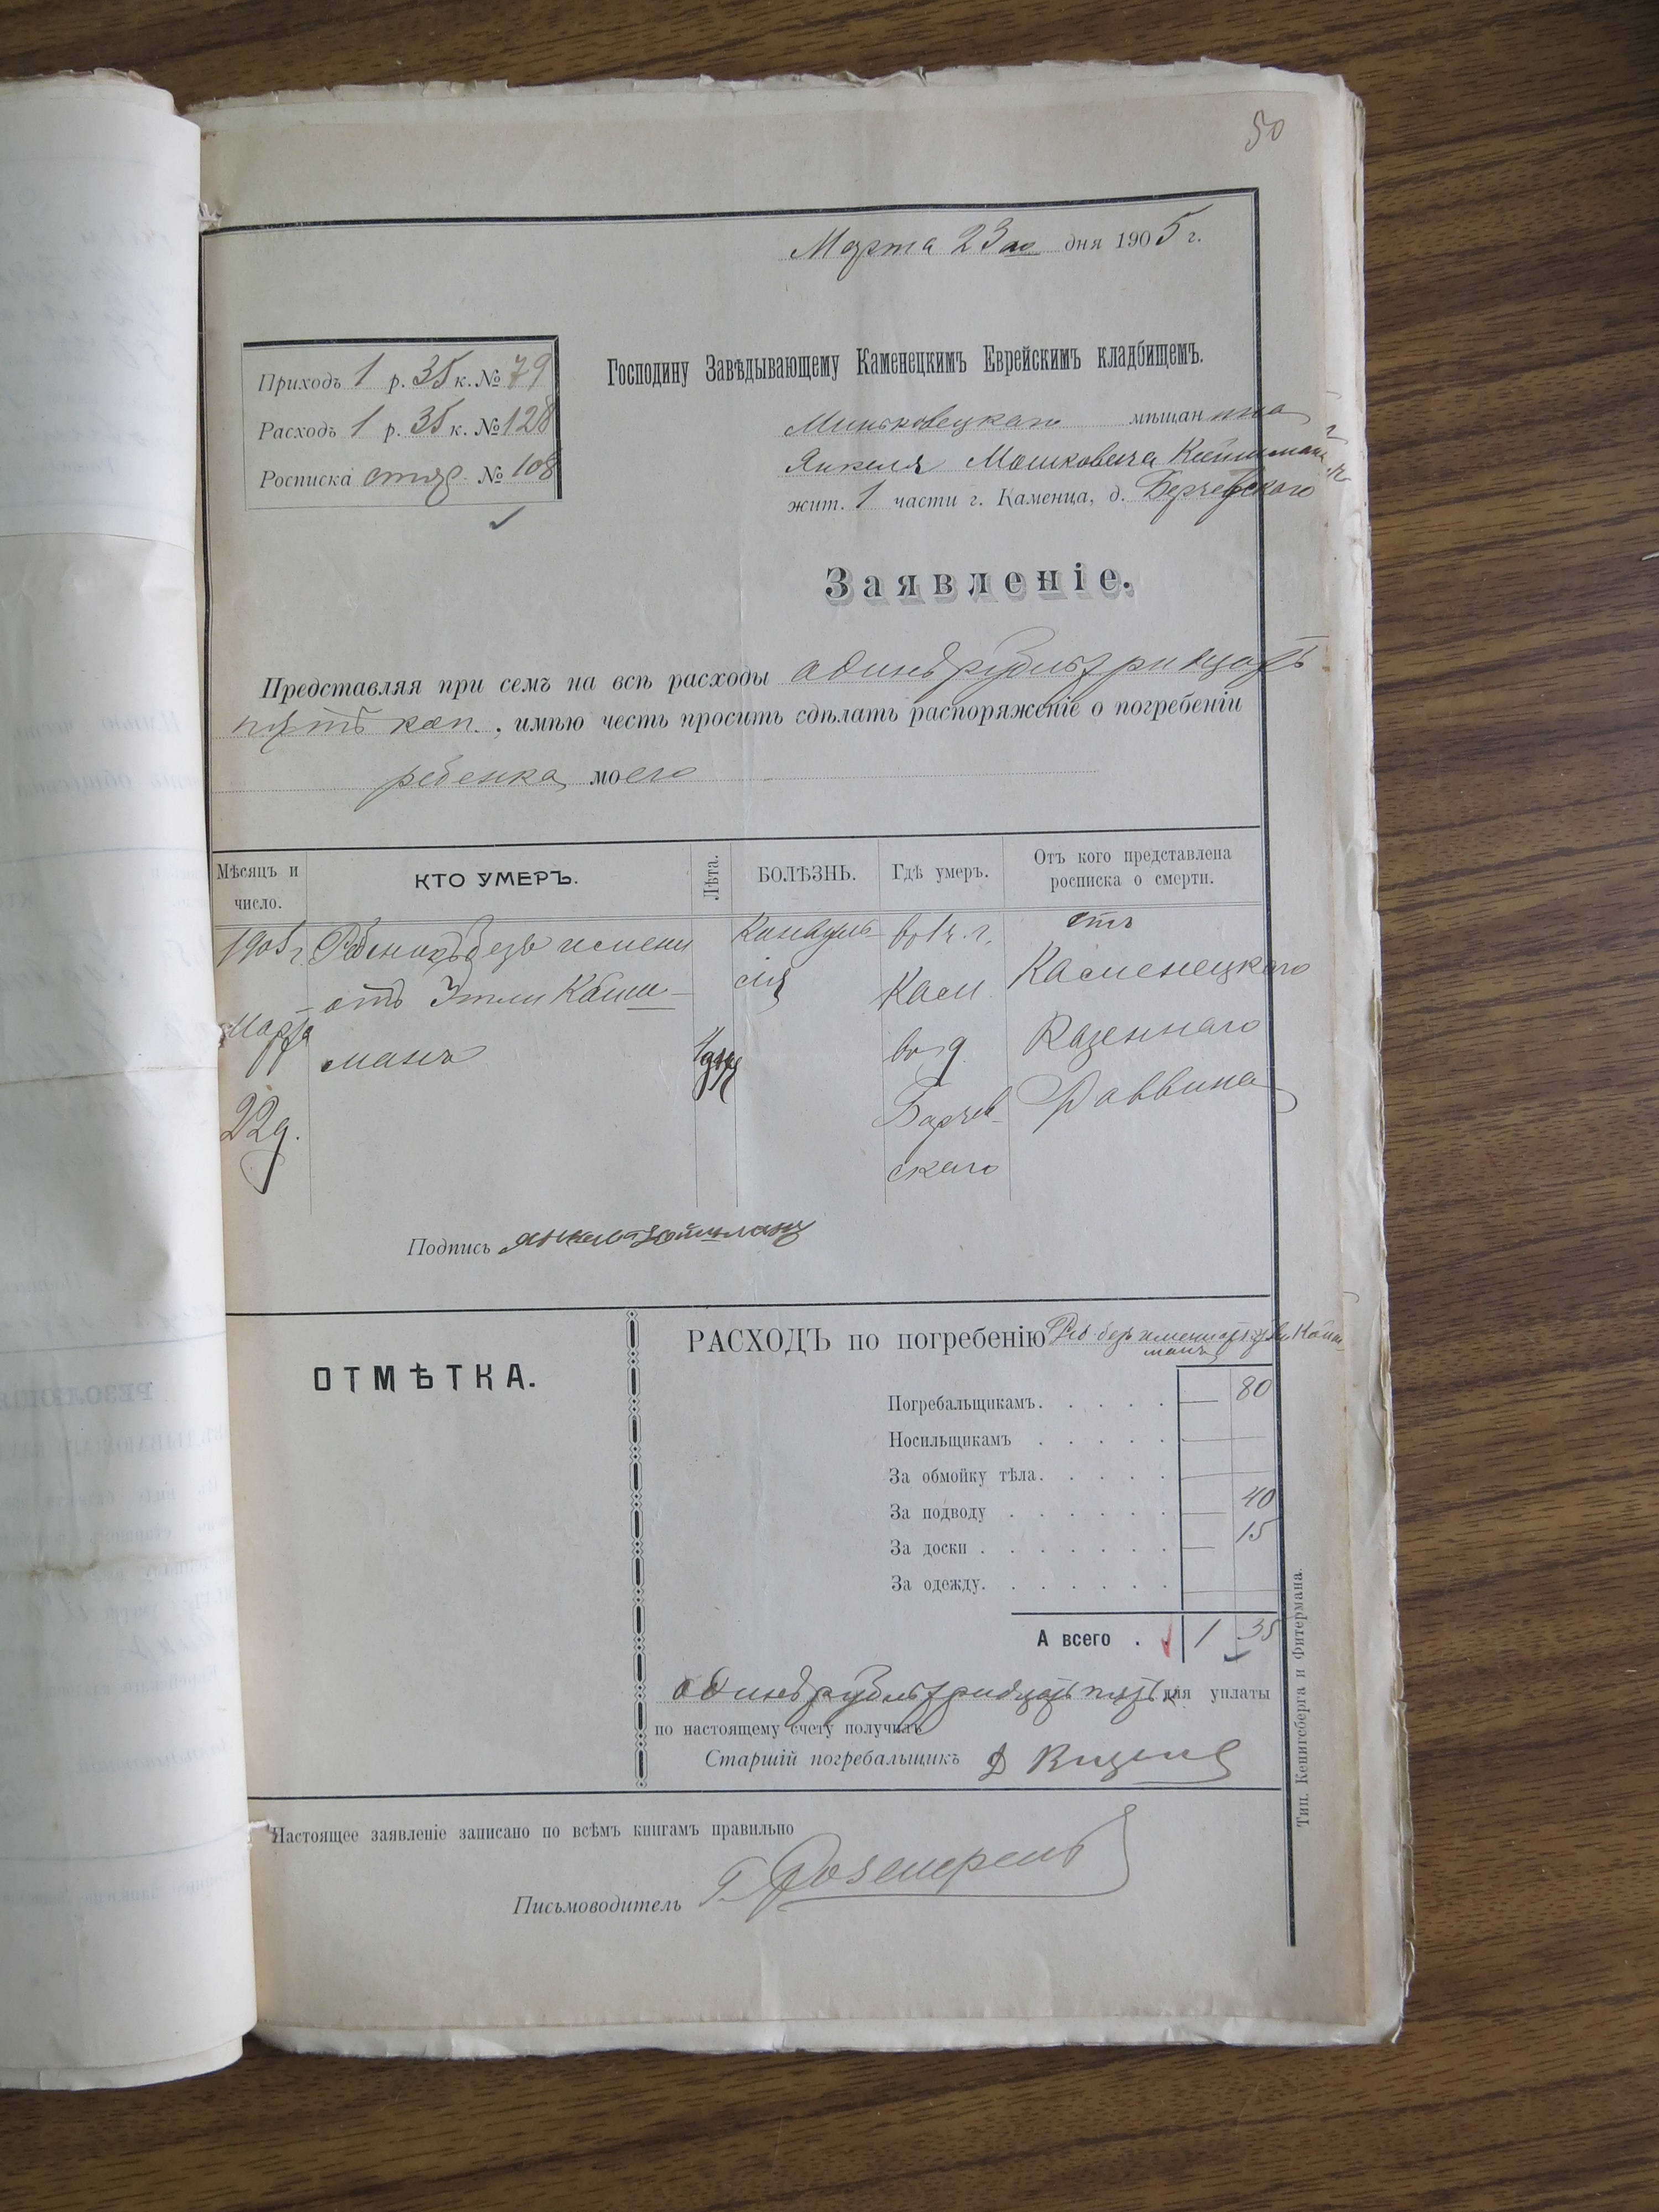 50
Марта 23го дня 1905 г.
Приходъ 1 р. 35 к. № 79
Расходъ 1 р. 35 к. № 128
Росписка стар. № 108
Господину Завѣдывающему Каменецкимъ Еврейскимъ кладбищемъ.
Миньковецкаго мѣщанина
Янкеля Мошковича
жит. 1 части г. Каменца, д.
Заявленіе.
Представляя при семъ на всѣ расходы одинъ рубль тридцать
пять коп., имѣю честь просить сдѣлать распоряженіе о погребеніи
ребенка моего
Мѣсяцъ и число. КТО УМЕРЪ. Лѣта. БОЛѢЗНЬ. Гдѣ умеръ. Отъ кого представлена росписка о смерти.
1905 г. Ребенокъ безъ имени Конвуль- во 1 ч. г. отъ
отъ Этли сія Кам. Каменецкаго
Марта манъ во д. Казеннаго
22 д. Раввина
скаго
Подпись
ОТМѢТКА.
РАСХОДЪ по погребенію Реб. безъ имени
манъ
Погребальщикамъ. — 80
Носильщикамъ
За обмойку тѣла.
За подводу — 40
За доски — 15
За одежду.
А всего 1 35
одинъ рубль тридцать пять к. для уплаты
по настоящему счету получилъ
Старшій погребальщикъ
Настоящее заявленіе записано по всѣмъ книгамъ правильно
Письмоводитель Г.
Тип. Кенигсберга и Фитермана.